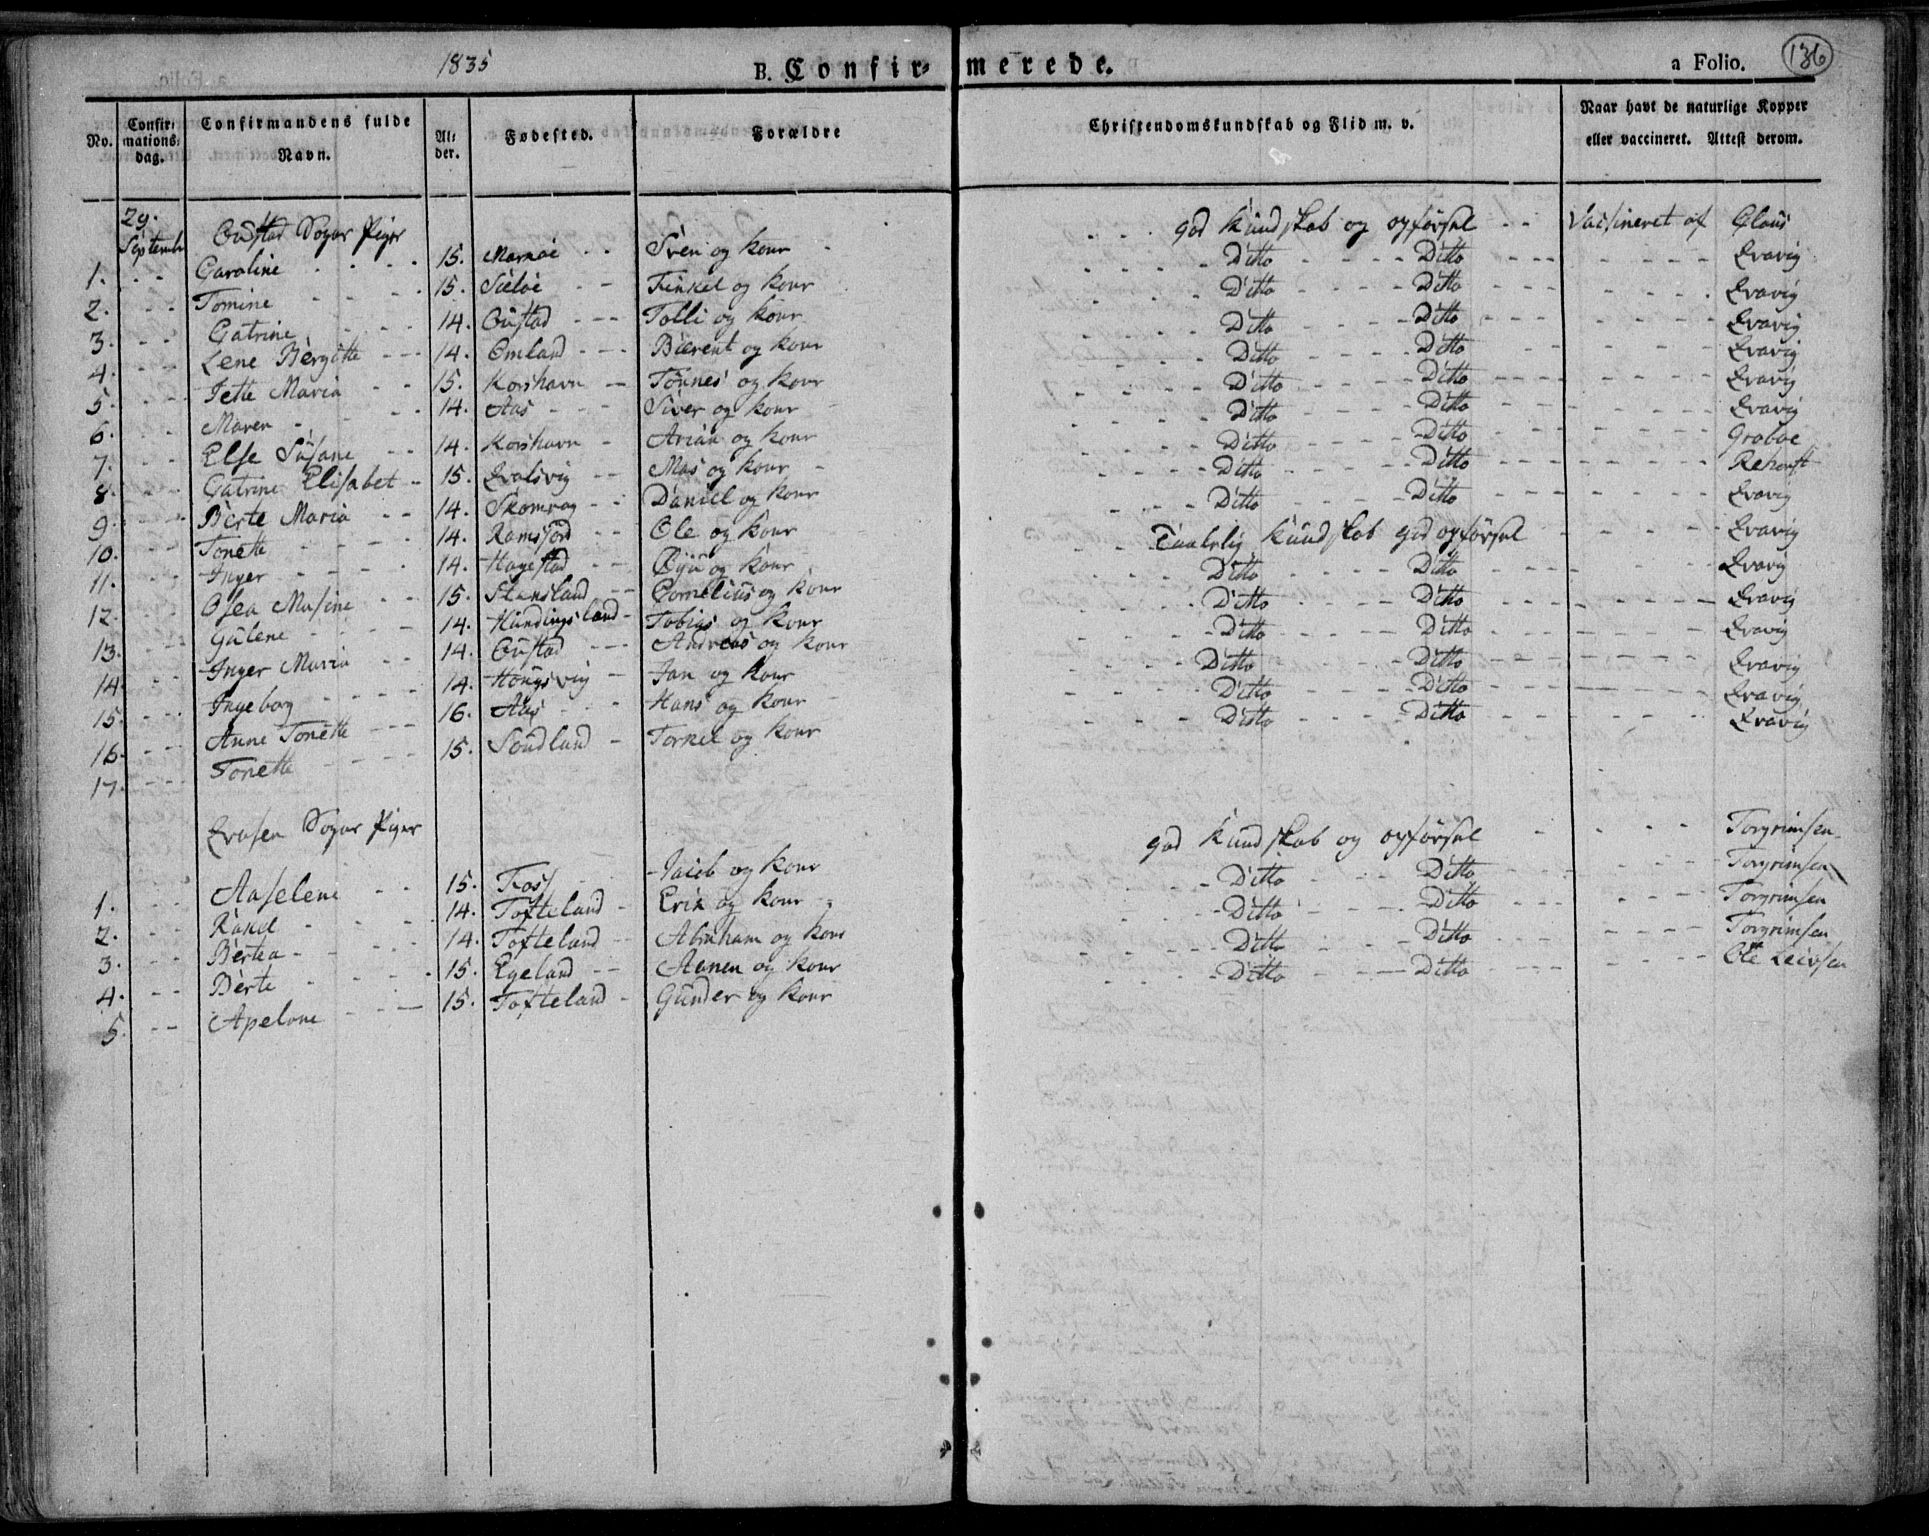 1835
B. Confir= merede.
a Folio.
136
No.
Confir= mations= dag.
Confirmandens fulde Navn.
Al= der.
Fødested.
Forældre
Christendomskundskab og Flid m. v.
Naar havt de naturlige Kopper eller vaccineret. Attest derom.
29. Septembr Oustad Sogns Piger
1. Caroline 15. Marnøe Sven og konr god kundskab og opførsel Vacsineret af Claus
2. Tomine 15. Sæløe Tinkel og konr Ditto Ditto Qvavig
3. Catrine 14. Oustad Tolli og konr Ditto Ditto Qvavig
4. Lene Bergitte 14. Omland Bærent og konr Ditto Ditto Qvavig
5. Jette Maria 15. Korshavn Tønnes og konr Ditto Ditto Qvavig
6. Maren 14. Aas Siver og konr Ditto Ditto Qvavig
7. Else Susane 14. Korshavn Arian og konr Ditto Ditto Qvavig
8. Catrine Elisabet 15. Qvalsvig Mas og konr Ditto Ditto Graboe
9. Berte Maria 14. Skomrag Daniel og konr Ditto Ditto Rehorst
10. Tonette 14. Ramsford Ole og konr Ditto Ditto Qvavig
11. Inger 14. Hagestad og konr Taalelig kundskab god opførsel Qvavig
12. Osea Masine 15. Stansland Cornelius og konr Ditto Ditto Qvavig
13. Gulene 14. Hundingsland Tobias og konr Ditto Ditto Qvavig
14. Inger Maria 14. Oustad Andreas og konr Ditto Ditto Qvavig
15. Ingeborg 14. Høugsvig Jan og konr Ditto Ditto Qvavig
16. Anne Tonette 16. Aas Hans og konr Ditto Ditto Qvavig
17. Tonette 15. Sondland Torkel og konr Ditto Ditto Qvavig
Qvasen Sogns Piger
1. Aaselene 15. Foss Jacob og konr god kundskab og opførsel Torgrimsen
2. Randi 14. Tofteland Erik og konr Ditto Ditto Torgrimsen
3. Bertea 14. Tofteland Abraham og konr Ditto Ditto Torgrimsen
4. Berte 15. Egeland Aanen og konr Ditto Ditto Torgrimsen
5. Apelone 15. Tofteland Gunder og konr Ditto Ditto Ole Leivsen